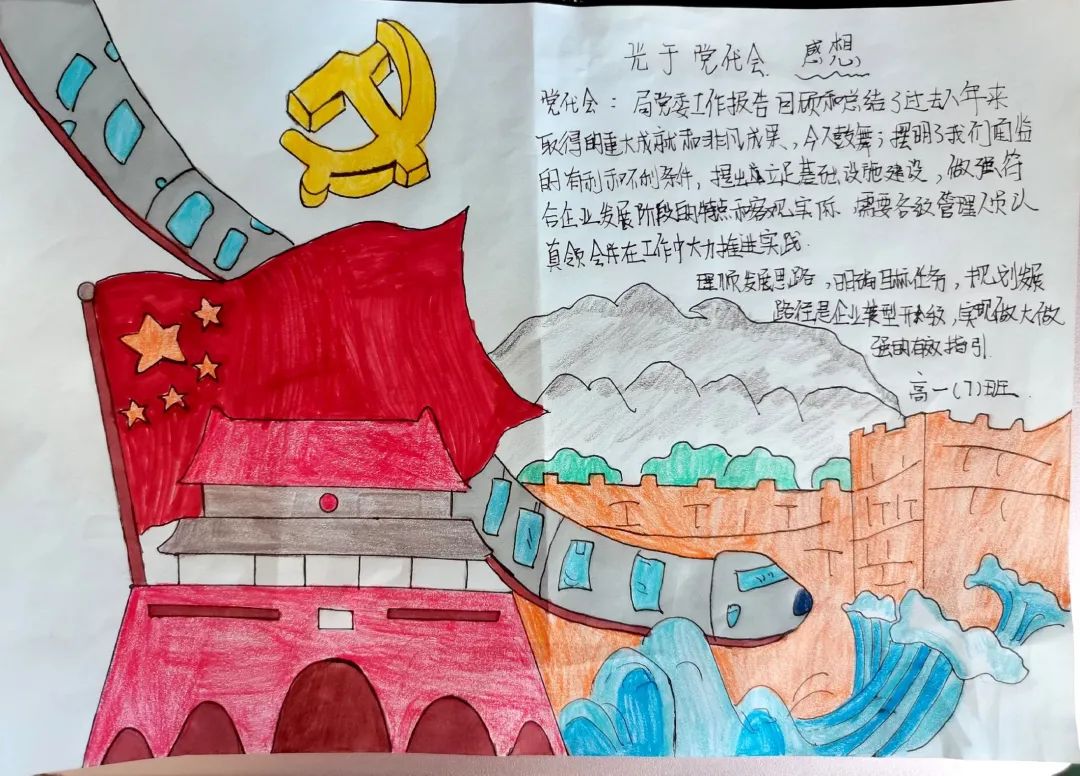 光于党代会 感想
党代会：局党委工作报告回顾和总结了过去八年来
取得的重大成就和非凡成果，令人鼓舞；摆明了我们面临
的有利和不利条件，提出立足基础设施建设，做强符
合企业发展阶段的特点和客观实际 需要各级管理人员认
真领会并在工作中大力推进实践.
理顺发展思路，明确目标任务，规划发展
路径是企业类型升级，实现做大做
强的有效指引.
高一(7)班.